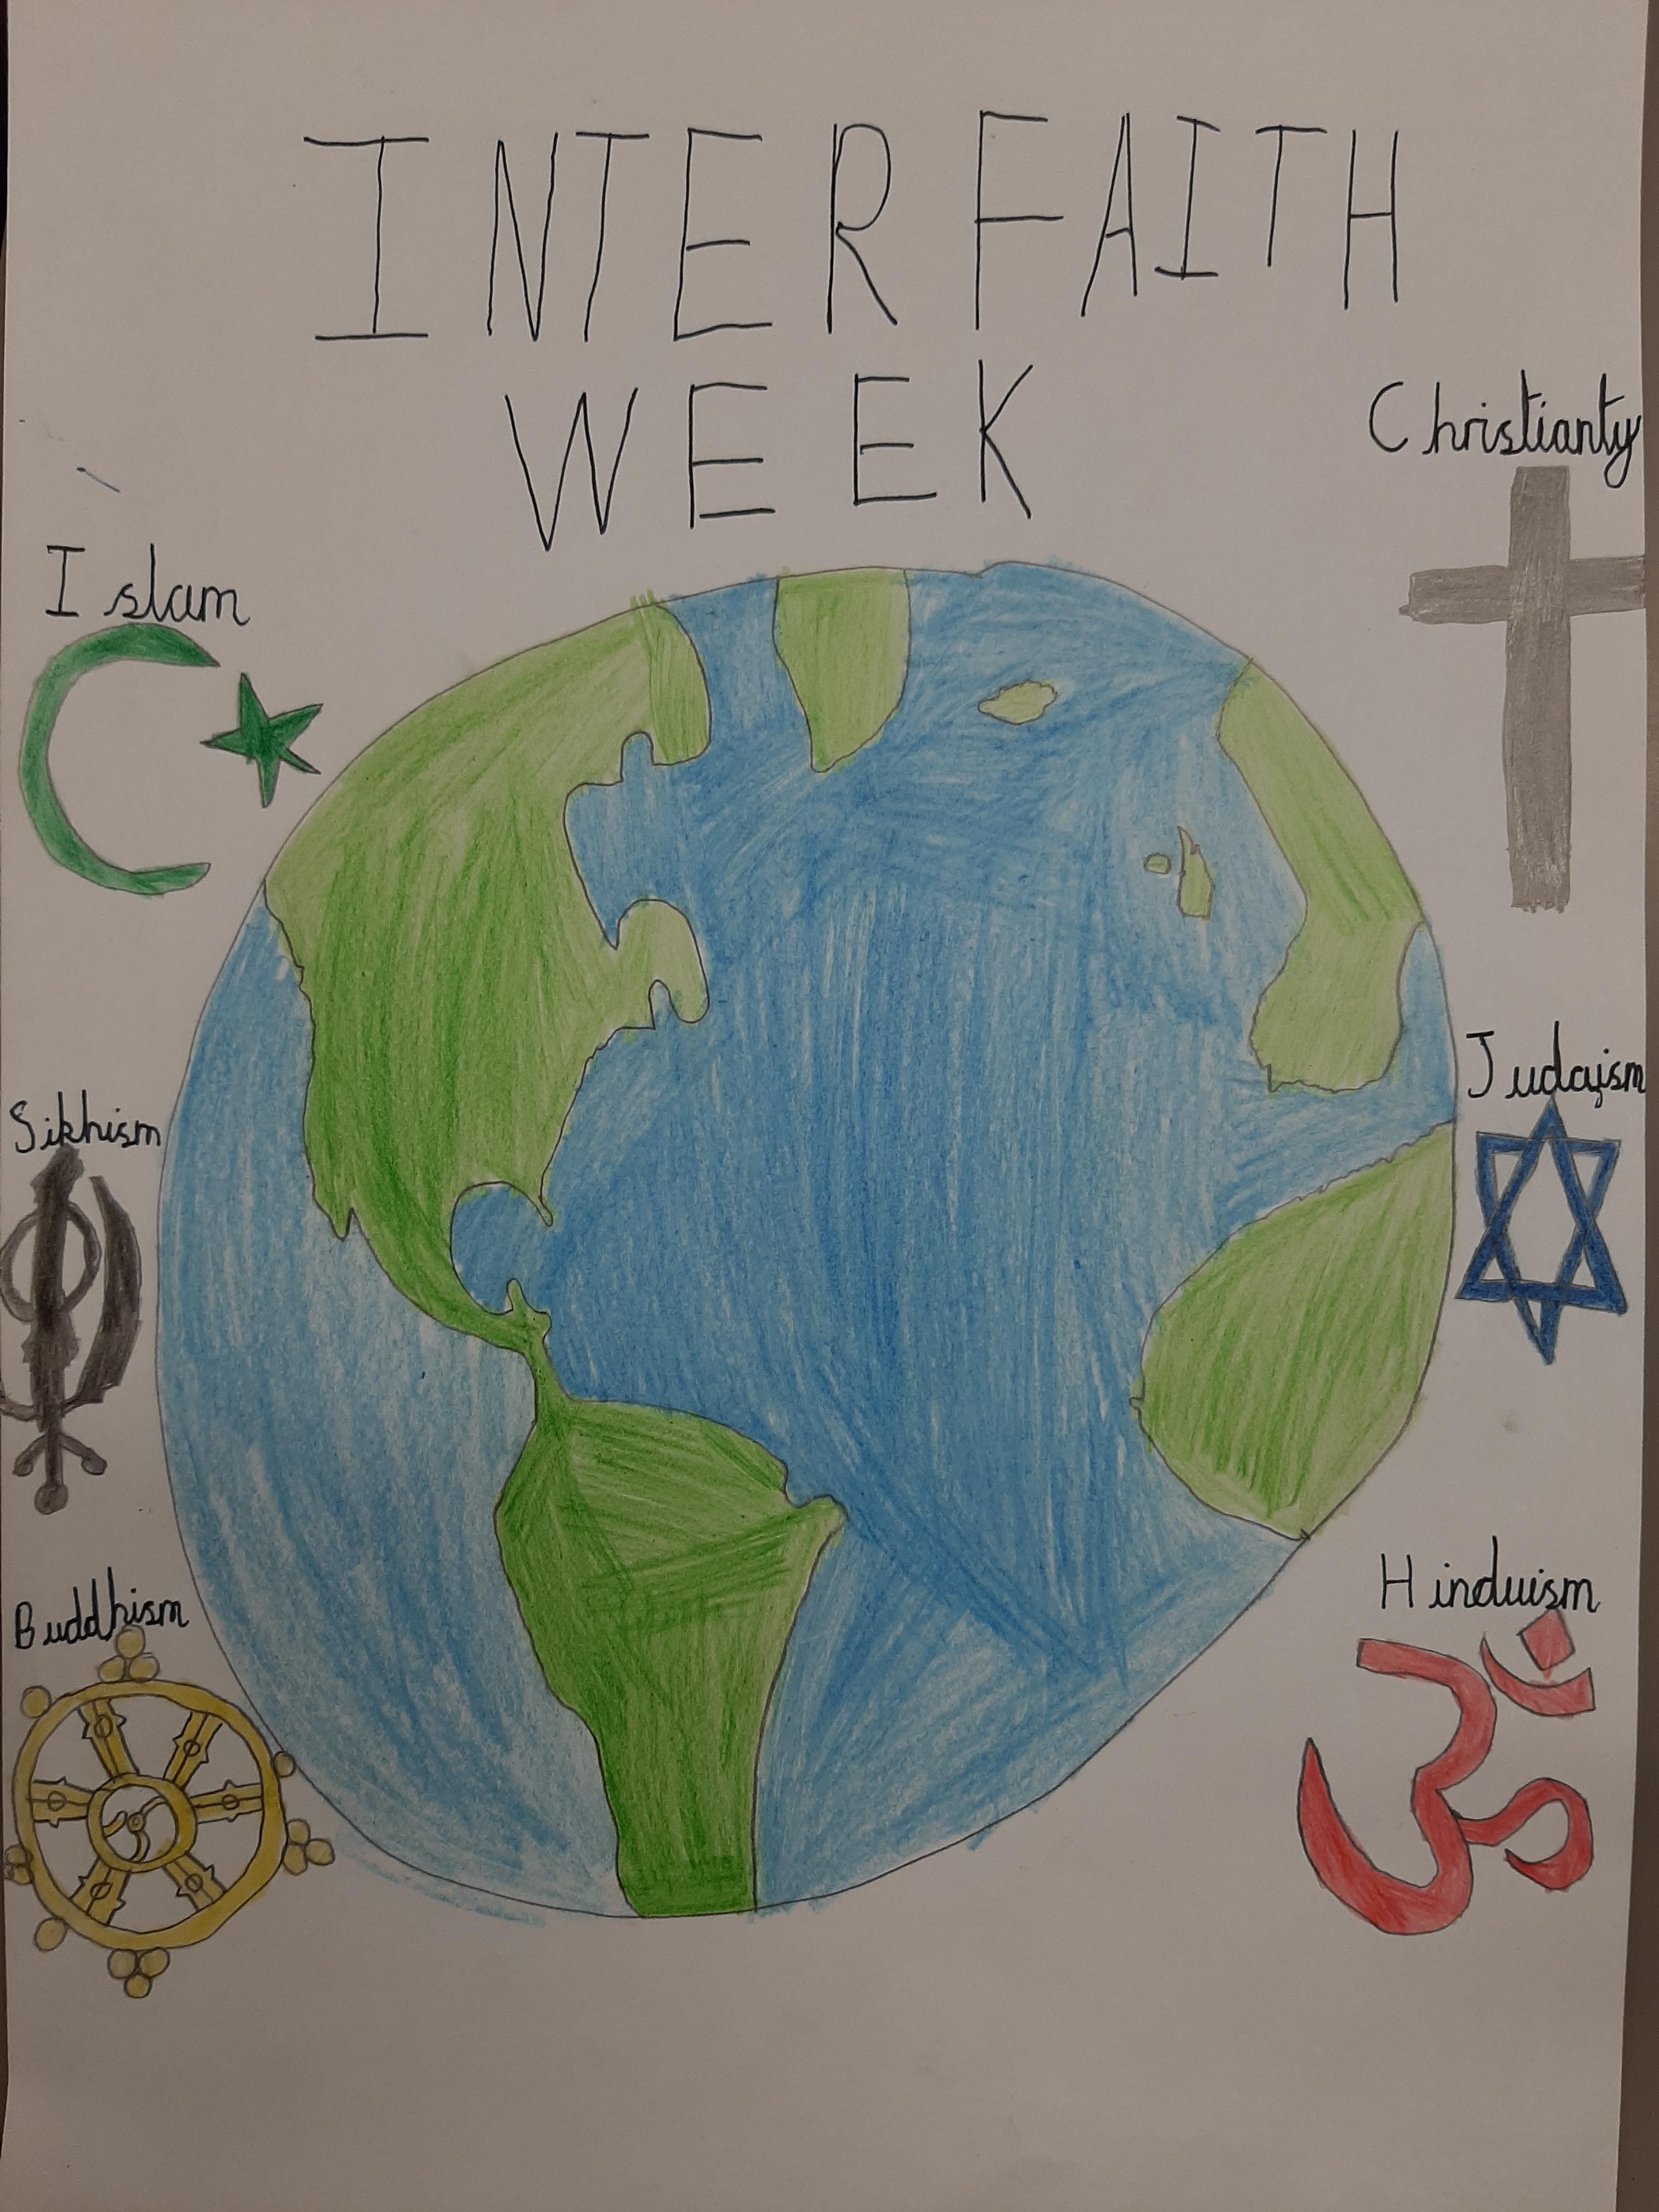 INTER FAITH
WEEK
Christianty
Islam
Judaism
Sikhism
Hinduism
Buddhism